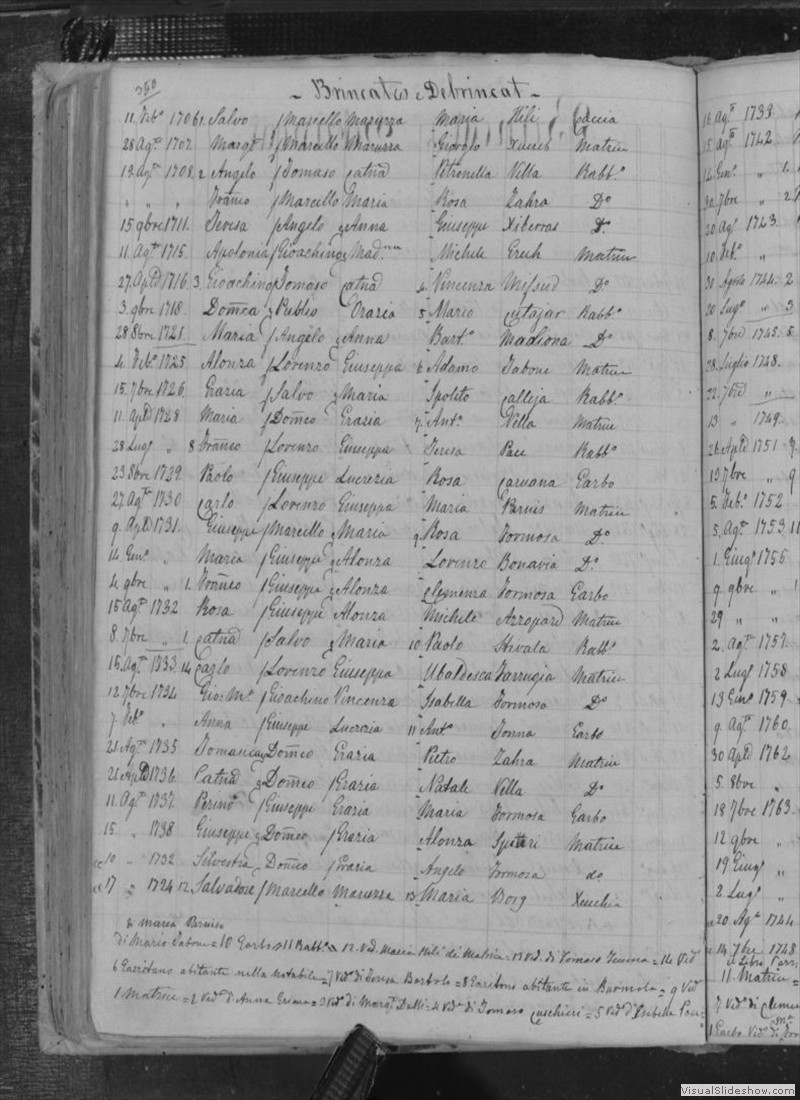 350
- Brincat o Debrincat -
11. Feb.o 1706 1. Salvo f Marcello Maruzza Maria Hili Caccia
28 Ag.to 1707. Marg.a f Marcello Maruzza Giorgio Xuereb Matrice
13. Ag.to 1708. 2 Angelo f Tomaso Catna Petronella Vella Rabb.o
" " " Franco f Marcello Maria Rosa Zahra Do
15 9bre 1711. Teresa f Angelo e Anna Giuseppe Xiberras Do.
11. Ag.to 1715. Apolonia f Gioachino e Mad.na Michele Grech Matrice
27. Aple 1716. 3. Gioachino f Tomaso Catna 4 Vincenza Mifsud Do
3. 9bre 1718. Domca f Publio Grazia 5 Mario Cutajar Rabb.o
28 8bre 1721. Maria f Angelo e Anna Bart.o Madiona Do
4. Feb.o 1725 Alonza f Lorenzo Giuseppa 6 Adamo Tabone Matrice
15. 7bre 1726. Grazia f Salvo e Maria Ipolito Calleja Rabb.o
11. Aple 1728 Maria f Domco Grazia 7. Ant.o Vella Matrice
28 Lug.o " 8 Franco f Lorenzo Giuseppa Teresa Pace Rabb.o
23 8bre 1729. Paolo f Giuseppe Lucrezia Rosa Caruana Garbo
27. Ag.to 1730 Carlo f Lorenzo Giuseppa Maria Parnis Matrice
9. Aple 1731. Giuseppe f Marcello e Maria 9 Rosa Formosa Do.
14 Gen.o " Maria f Giuseppe e Alonza Lorenzo Bonavia Do.
4 9bre " 1. Franco f Giuseppe e Alonza Clemenza Formosa Garbo
15 Ag.to 1732 Rosa f Giuseppe Alonza Michele Azzopard Matrice
8. 7bre " 1. Catna f Salvo e Maria 10 Paolo Hevala Rabb.o
15. Ag.to 1733 14 Carlo f Lorenzo Giuseppa Ubaldesca Farrugia Matrice
12. 7bre 1734. Gio: M.a f Gioachino Vincenza Isabella Formosa Do
7. Feb.o " Anna f Giuseppe Lucrezia 11 Ant.o Tonna Garbo
21 Ag.to 1735 Tomasica Domco Grazia Pietro Zahra Matrice
21 Aple 1736. Catna e Domco f Grazia Natale Vella Do
11. Ag.to 1737. Perina f Giuseppe Grazia Maria Formosa Garbo
15 " 1738 Giuseppe e Domco f Grazia Alonza Spiteri Matrice
10 " 1732 Silvestra Domco f Grazia Angelo Formosa do
17 " 1724 12 Salvadore f Marcello Maruzza 13 Maria Borg Xeuchia
di Maria Parnis
di Mario Tabone = 10 Garbo = 11 Rabb.o = 12. Ved. Maria Hili di Matrice = 13 Ved. di Tomaso = 14 Ved.
6 Gozitano abitante nella Notabile = 7 Ved. di Teresa = 8 abitante in Burmola = 9 Ved.
1 Matrice = 2 Ved. di Anna Grima = 3 Ved. di Marg.a Dalli = 4 Ved. di Tomaso Cuschieri = 5 Ved. d'Isabella
16 Ag.to 1738
15 Ag.to 1742
14 Gen.o "
30 7bre " 2
20 Ag.o 1743.
10 Feb.o "
31 Agosto 1744. 2
20 Lug.o " 3
8. 7bre 1745. 5
28 Luglio 1748.
22. 7bre "
13 " 1749.
26 Aple 1751
19 7bre " 9
5. Feb.o 1752
5. Ag.to 1753 11
1. Giug.o 1756
9 9bre "
29 " "
2. Ag.to 1757.
2 Lug.o 1758
13 Gen.o 1759
9. Ag.to 1760.
30 Aple 1762
5. 8bre "
18 7bre 1763.
12 9bre "
19 Giug.o "
2 Lug.o "
20 Ag.to 1744
14. 7bre 1748
11 Matrice =
7 Ved.o di
1 Garbo Ved.o di
VisualSlideshow.com